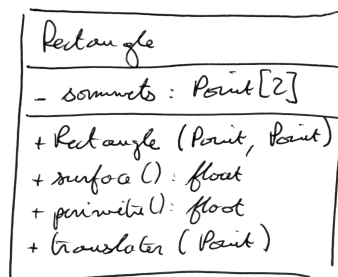 Rectangle
- sommets : Point [2]
+ Rectangle (Point, Point)
+ surface () : float
+ perimetre () : float
+ translater (Point)